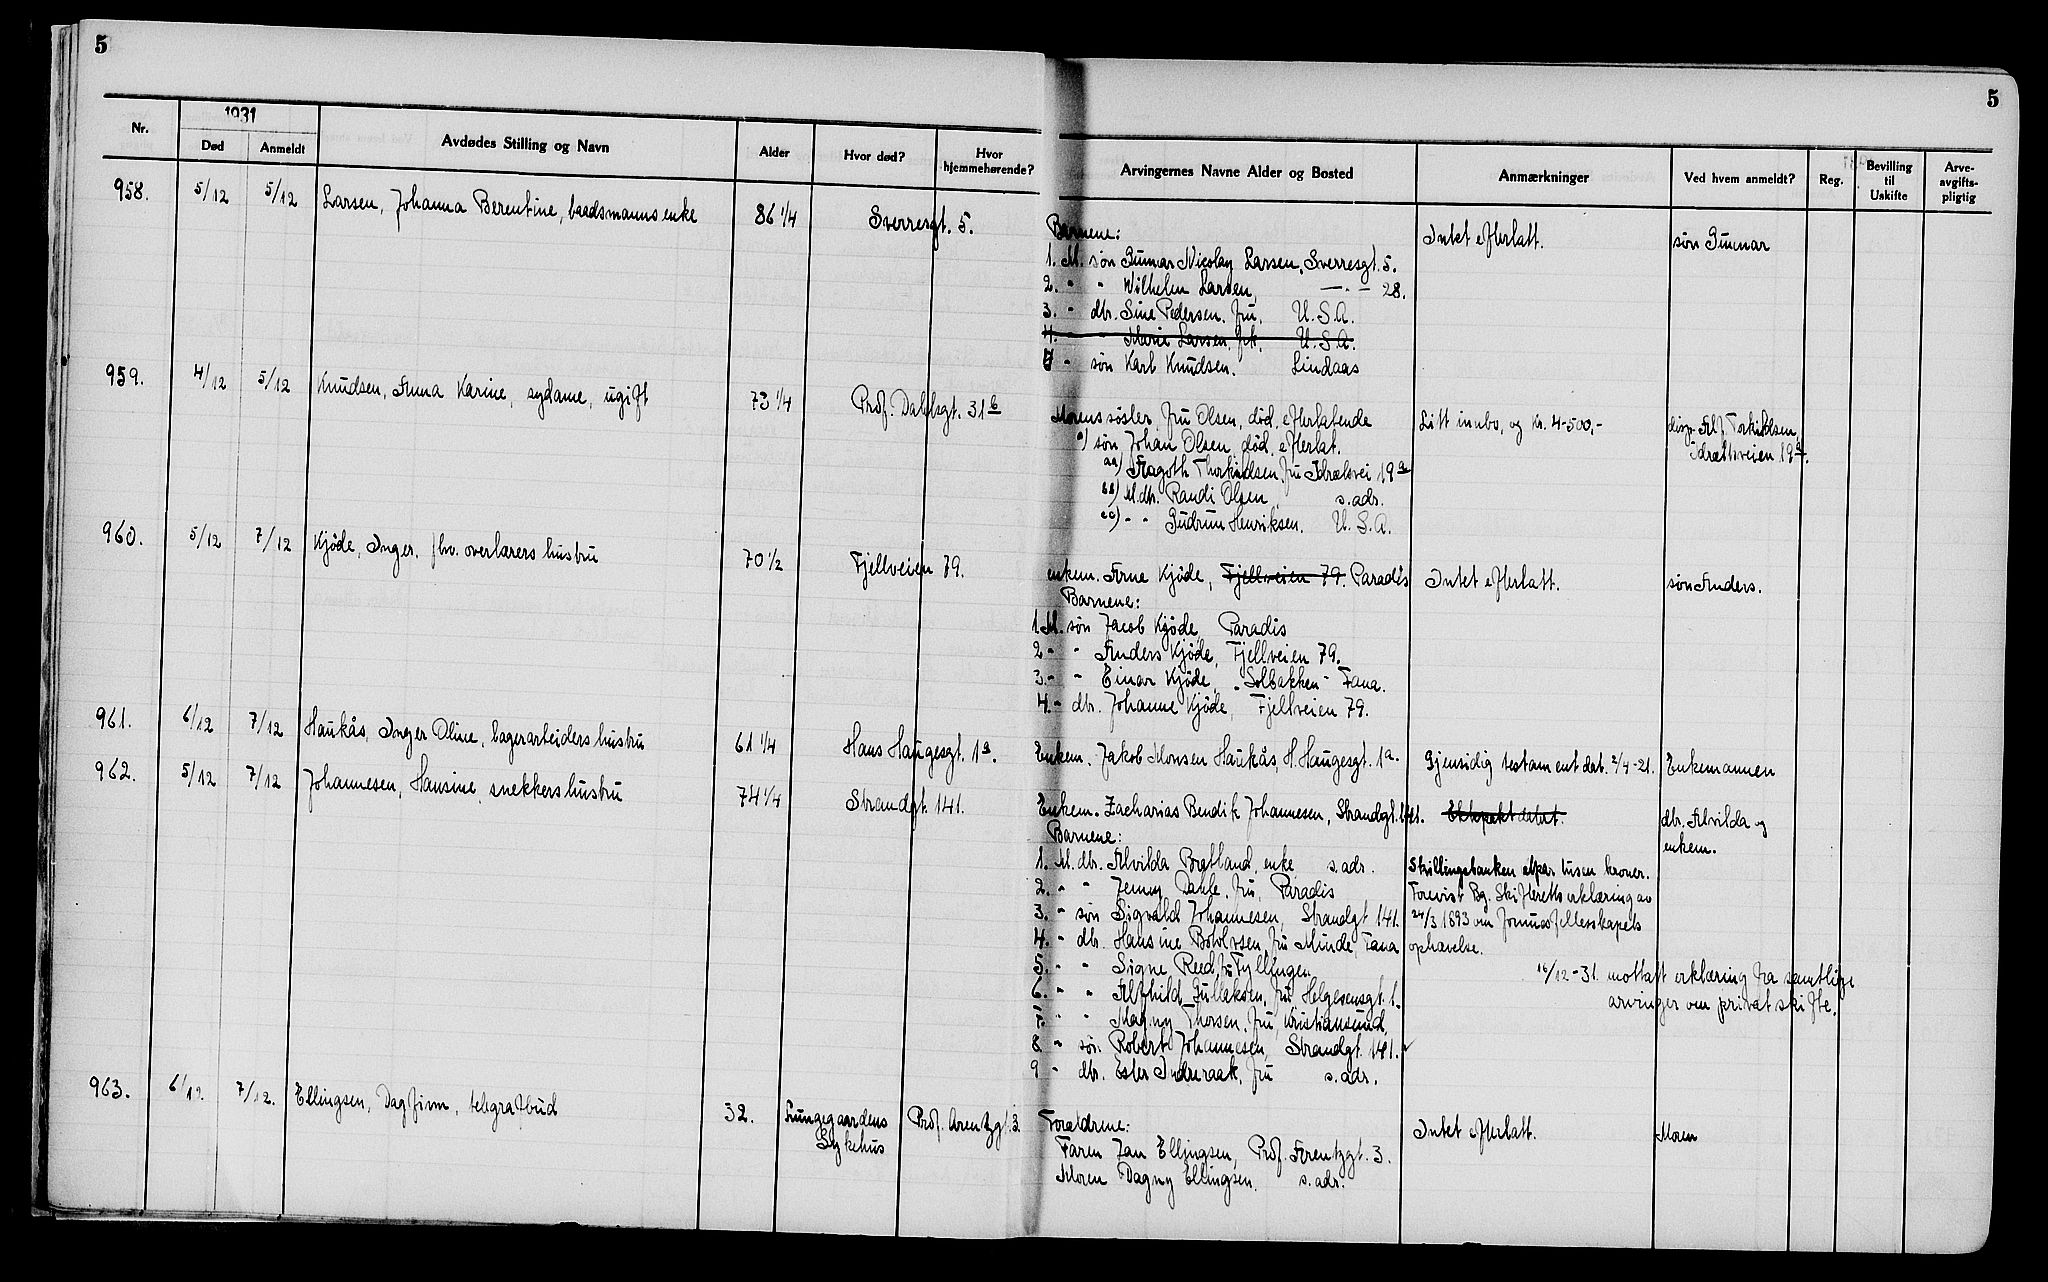 5
5
1931
Nr. Død Anmeldt Avdødes Stilling og Navn Alder Hvor død? Hvor hjemmehørende?
Arvingernes Navne Alder og Bosted Anmærkninger Ved hvem anmeldt? Reg. Bevilling til Uskifte Arve-avgifts-pligtig
958. 5/12 5/12 Larsen, Johanna Berentine, baadsmanns enke 86 1/4 Sverresgt. 5.
Barnene: Intet efterlatt. søn Gunnar
1. M. søn Gunnar Nicolay Larsen, Sverresgt. 5.
2. " " Wilhelm Larsen, —"— 28.
3. " dtr. Sine Pedersen, fru, U.S.A.
4. " " Marie Larsen, frk. U.S.A.
" søn Karl Knudsen. Lindaas
959. 4/12 5/12 Knudsen, Anna Karine, sydame, ugift 73 1/4 Prof. Dahlsgt. 31 b
Morens søster, fru Olsen, død, efterlatende Litt innbo, og kr. 4-500,- disp. Alf Torkildsen,
a) søn, Johan Olsen, død, efterlat. Idrætsveien 19a.
aa) Aagoth Thorkildsen, fru Idrætsvei 19a
bb) M. dtr. Randi Olsen, s. adr.
cc) " " Gudrun Henriksen. U.S.A.
960. 5/12 7/12 Kjöde, Inger, fhv. overlærers hustru 70 1/2 Fjellveien 79.
enkem. Arne Kjöde, Fjellveien 79. Paradis Intet efterlatt. søn Anders.
Barnene:
1 M. søn Jacob Kjöde, Paradis
2 " " Anders Kjöde, Fjellveien 79.
3. " " Einar Kjöde, "Solbakken" Fana.
4. " dtr. Johanne Kjöde, Fjellveien 79.
961. 6/12 7/12 Haukås, Inger Oline, lagerarbeiders hustru 61 1/4 Hans Haugesgt. 1a.
Enkem. Jakob Monsen Haukås, H. Haugesgt. 1a. Gjensidig testament dat. 2/4-21. Enkemannen
962. 5/12 7/12 Johannesen, Hansine, snekkers hustru 74 1/4 Strandgt 141.
Enkem. Zacharias Bendik Johannesen, Strandgt. 141. Ektepakt datert. dtr. Alvilda og
Barnene: enkem.
1. M. dtr. Alvilda Brætland, enke s. adr. Skillingsbanken etpar tusen kroner.
2. " " Jenny Dahle, fru, Paradis Forevist Bg. Skifteretts erklæring av
3. " søn Sigvald Johannesen, Strandgt 141. 24/3 1893 om formuesfellesskapets
4. " dtr. Hansine Botolvsen, fru Minde, Fana ophævelse.
5. " " Signe Reed, fru Fyllingen 16/12-31. mottatt erklæring fra samtlige
6. " " Alfhild Gullaksen, fru Helgesensgt. 1. arvinger om privat skifte.
7. " " Magny Thorsen, fru Kristiansund,
8 " søn. Robert Johannesen, Strandgt. 141.
9 " dtr. Ester Indreraak, fru s. adr.
963. 6/12. 7/12. Ellingsen, Dag Finn, telegrafbud 32. Haungegaardens Prof. Arentzgt. 3.
Sykehus
Forældrene: Intet efterlatt. Moren
Faren Jan Ellingsen, Prof. Arentzgt. 3.
Moren Dagny Ellingsen. s. adr.